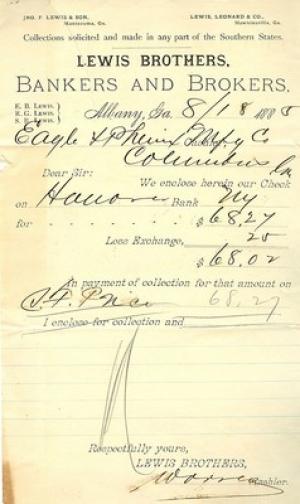 JNO. F. LEWIS & SON, LEWIS, LEONARD & CO.,
Montezuma, Ga. Hawkinsville, Ga.
Collections solicited and made in any part of the Southern States.
LEWIS BROTHERS,
BANKERS AND BROKERS,
E. B. LEWIS.
R. G. LEWIS.
S. B. LEWIS.
Albany, Ga. 8/18 1888
Eagle & Phenix Mfg Co
Cashier,
Columbus Ga
Dear Sir:
We enclose herein our Check
on Hanover Bank NY
for $68.27
Less Exchange, 25
$68.02
In payment of collection for that amount on
S. F. Price 68.27
I enclose for collection and
Respectfully yours,
LEWIS BROTHERS,
Cashier.